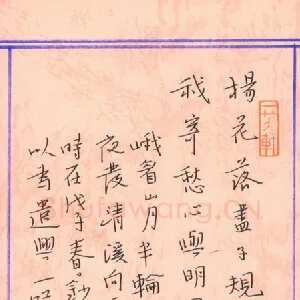 楊花落盡子規
我寄愁心與明
峨眉山月半輪
夜發清溪向
時在戊子春鈔
以書遣興一